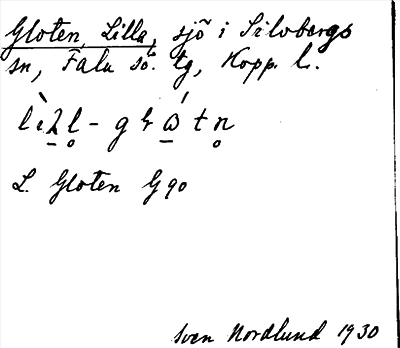 Gloten, Lilla, sjö i Silvbergs
sn, Falu sö. tg, Kopp. l.
L. Gloten G 90
Sven Nordlund 1930